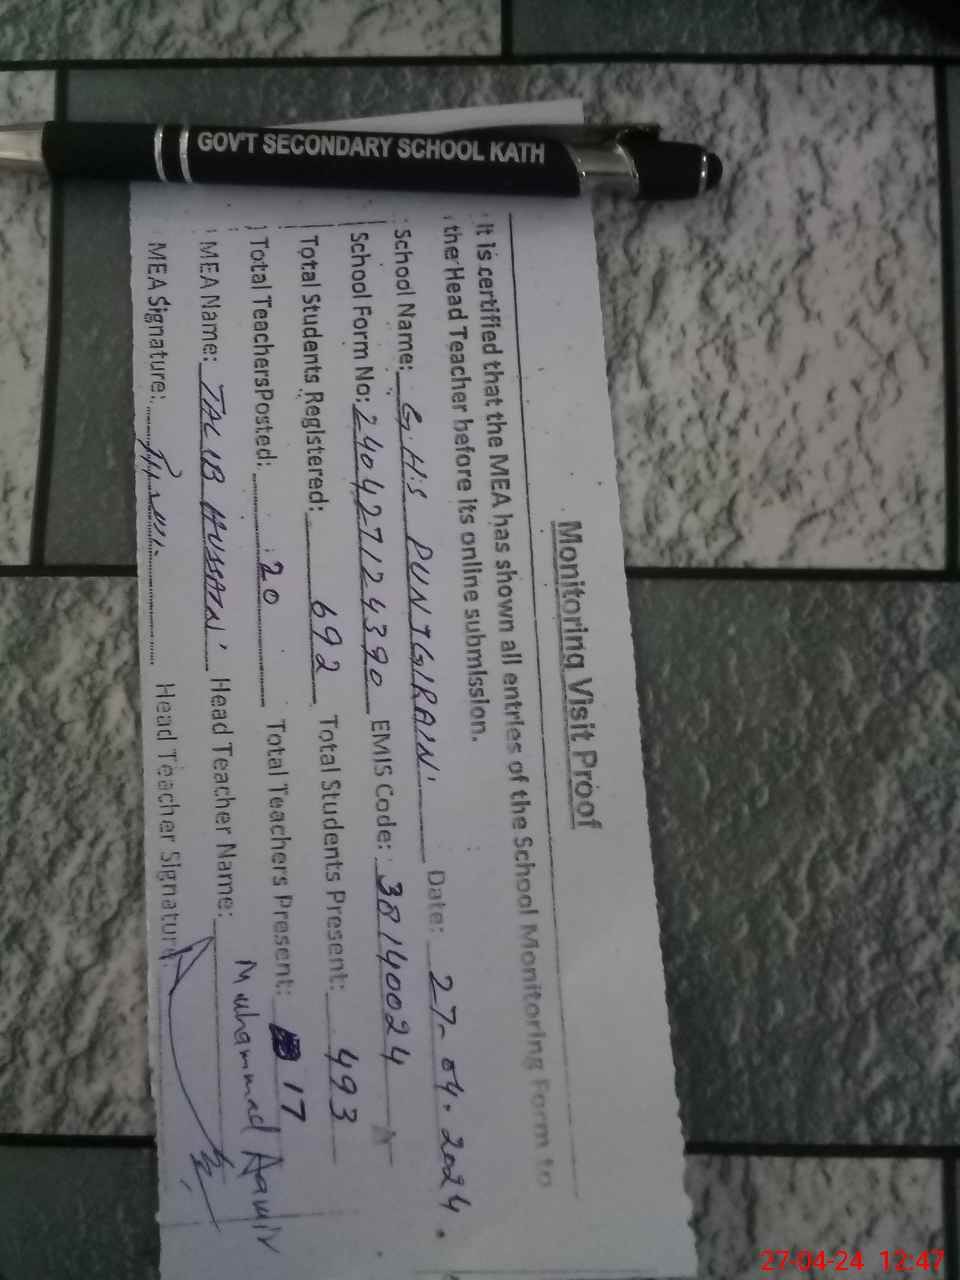 GOV'T SECONDARY SCHOOL KATH
Monitoring Visit Proof
It is certified that the MEA has shown all entries of the School Monitoring Form to
the Head Teacher before its online submission.
School Name: G.H.S PUNJGIRAIN Date: 27-04-2024.
School Form No: 240427124390 EMIS Code: 38140024
Total Students Registered: 692 Total Students Present: 493
Total TeachersPosted: 20 Total Teachers Present: 17
MEA Name: TALIB HUSSAIN Head Teacher Name: Muhammad Aamir
MEA Signature: Head Teacher Signature:
27-04-24 12:47